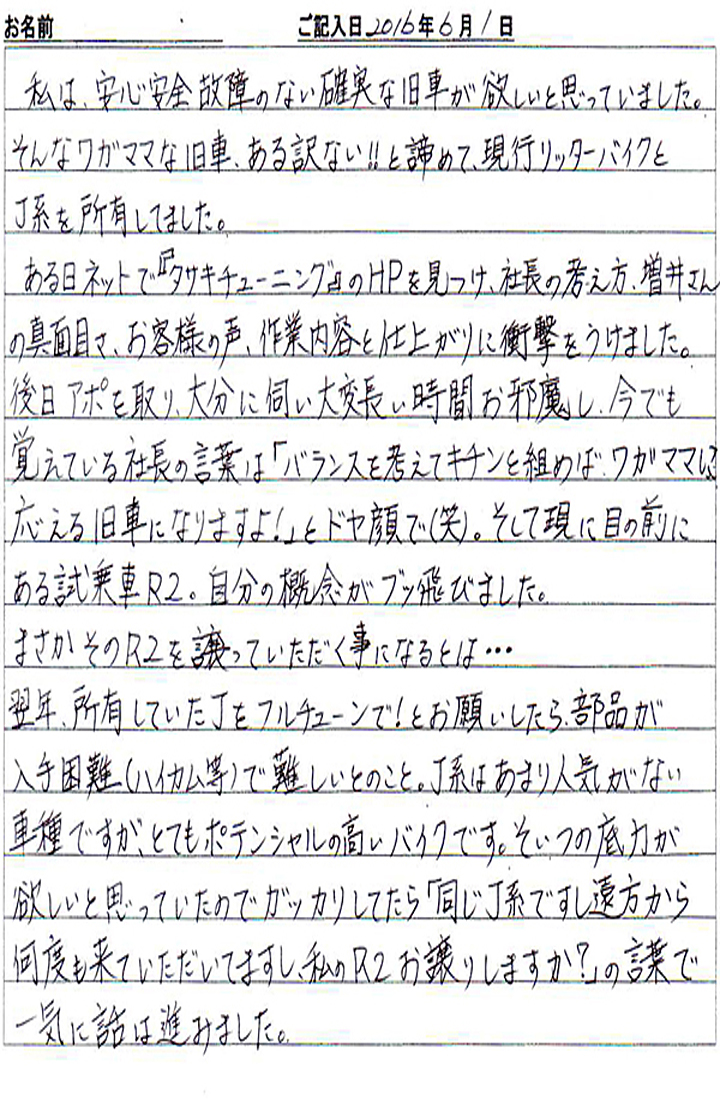 お名前 ご記入日 2016年6月1日
私は、安心安全故障のない確実な旧車が欲しいと思っていました。
そんなワガママな旧車、ある訳ない!!と諦めて、現行リッターバイクと
J系を所有してました。
ある日ネットで『タサキチューニング』のHPを見つけ、社長の考え方、増井さん
の真面目さ、お客様の声、作業内容と仕上がりに衝撃をうけました。
後日アポを取り、大分に伺い大変長い時間お邪魔し、今でも
覚えている社長の言葉は「バランスを考えてキチンと組めば、ワガママに
応える旧車になりますよ!」とドヤ顔で(笑)。そして現に目の前に
ある試乗車R2。自分の概念がブッ飛びました。
まさかそのR2を譲っていただく事になるとは…
翌年、所有していたJをフルチューンで!とお願いしたら、部品が
入手困難(ハイカム等)で難しいとのこと。J系はあまり人気がない
車種ですが、とてもポテンシャルの高いバイクです。そいつの底力が
欲しいと思っていたのでガッカリしてたら「同じJ系ですし遠方から
何度も来ていただいてますし、私のR2お譲りしますか?」の言葉で
一気に話は進みました。